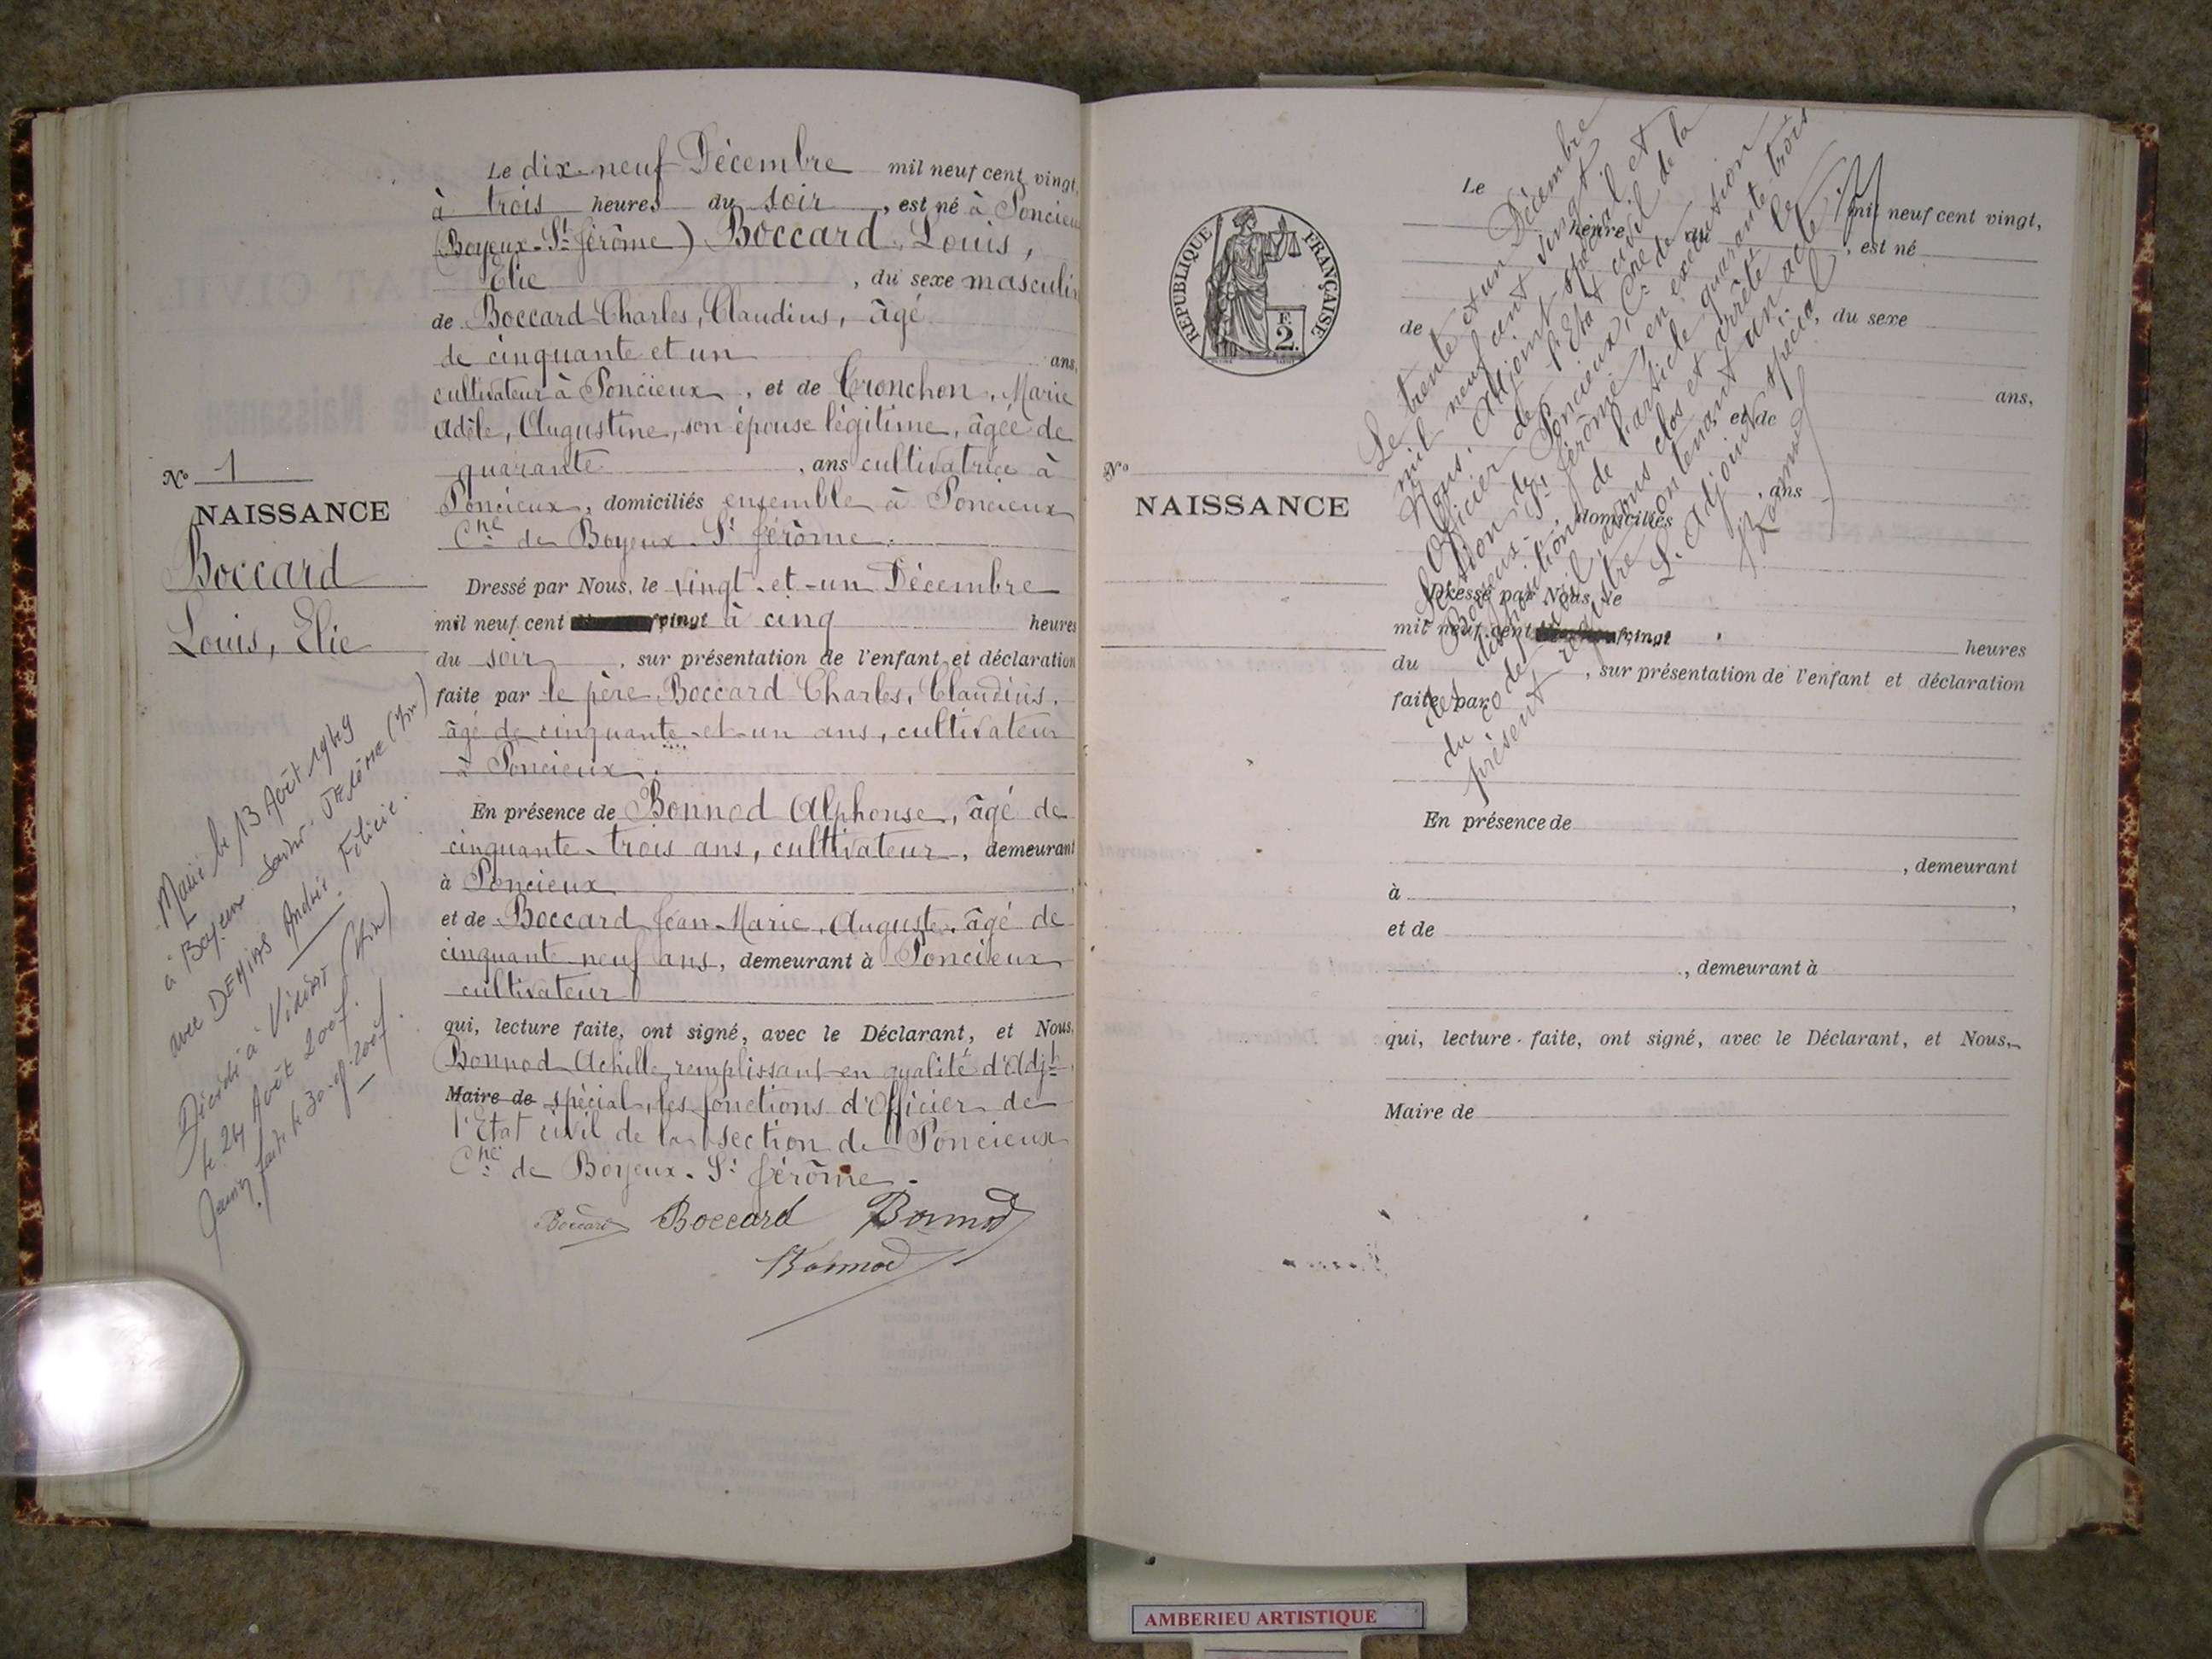 Le dix-neuf Décembre mil neuf cent vingt,
à trois heures du soir, est né à Poncieux
(Boyeux-St Jérôme) Boccard, Louis,
Elie, du sexe masculin
de Boccard Charles, Claudius, âgé
de cinquante et un ans,
cultivateur à Poncieux, et de Cronchon, Marie
Adèle, Augustine, son épouse légitime, âgée de
quarante, ans cultivatrice à
Poncieux, domiciliés ensemble à Poncieux
Cne de Boyeux-St Jérôme.
Dressé par Nous, le vingt-et-un Décembre
mil neuf cent vingt à cinq heures
du soir, sur présentation de l'enfant et déclaration
faite par le père Boccard Charles, Claudius,
âgé de cinquante-et-un ans, cultivateur
à Poncieux.
En présence de Bonnod Alphonse, âgé de
cinquante-trois ans, cultivateur, demeurant
à Poncieux
et de Boccard Jean-Marie, Auguste, âgé de
cinquante neuf ans, demeurant à Poncieux
cultivateur
qui, lecture faite, ont signé, avec le Déclarant, et Nous,
Bonnod Achille, remplissant en qualité d'Adjt
Maire de spécial, les fonctions d'Officier de
l'Etat civil de la section de Poncieux
Cne de Boyeux-St Jérôme.
Boccard Boccard Bonnod
Bonnod
No 1
NAISSANCE
Boccard
Louis, Elie
Marié le 13 Août 1949
à Boyeux-Saint-Jérôme (Ain)
avec DEMIAS Andrée Félicie.
Décédé à Viriat (Ain)
le 24 Août 2007.
faite le 30-08-2007.
RÉPUBLIQUE FRANÇAISE
F.
2.
No
NAISSANCE
Le
mil neuf cent vingt,
heure du, est né
de, du sexe
ans,
et de
, ans
domiciliés
Dressé par Nous, le
mil neuf cent vingt
heures
du, sur présentation de l'enfant et déclaration
faite par
En présence de
, demeurant
à
et de
, demeurant à
qui, lecture faite, ont signé, avec le Déclarant, et Nous,
Maire de
Le trente et un Décembre
mil neuf cent vingt
Nous, Adjoint spécial et
Officier de l'Etat civil de la
Section de Poncieux, Cne de
Boyeux-St Jérôme, en exécution
des dispositions de l'article quarante trois
du code civil, avons clos et arrêté le
présent registre contenant un acte
L'Adjoint spécial
Bonnod
AMBERIEU ARTISTIQUE